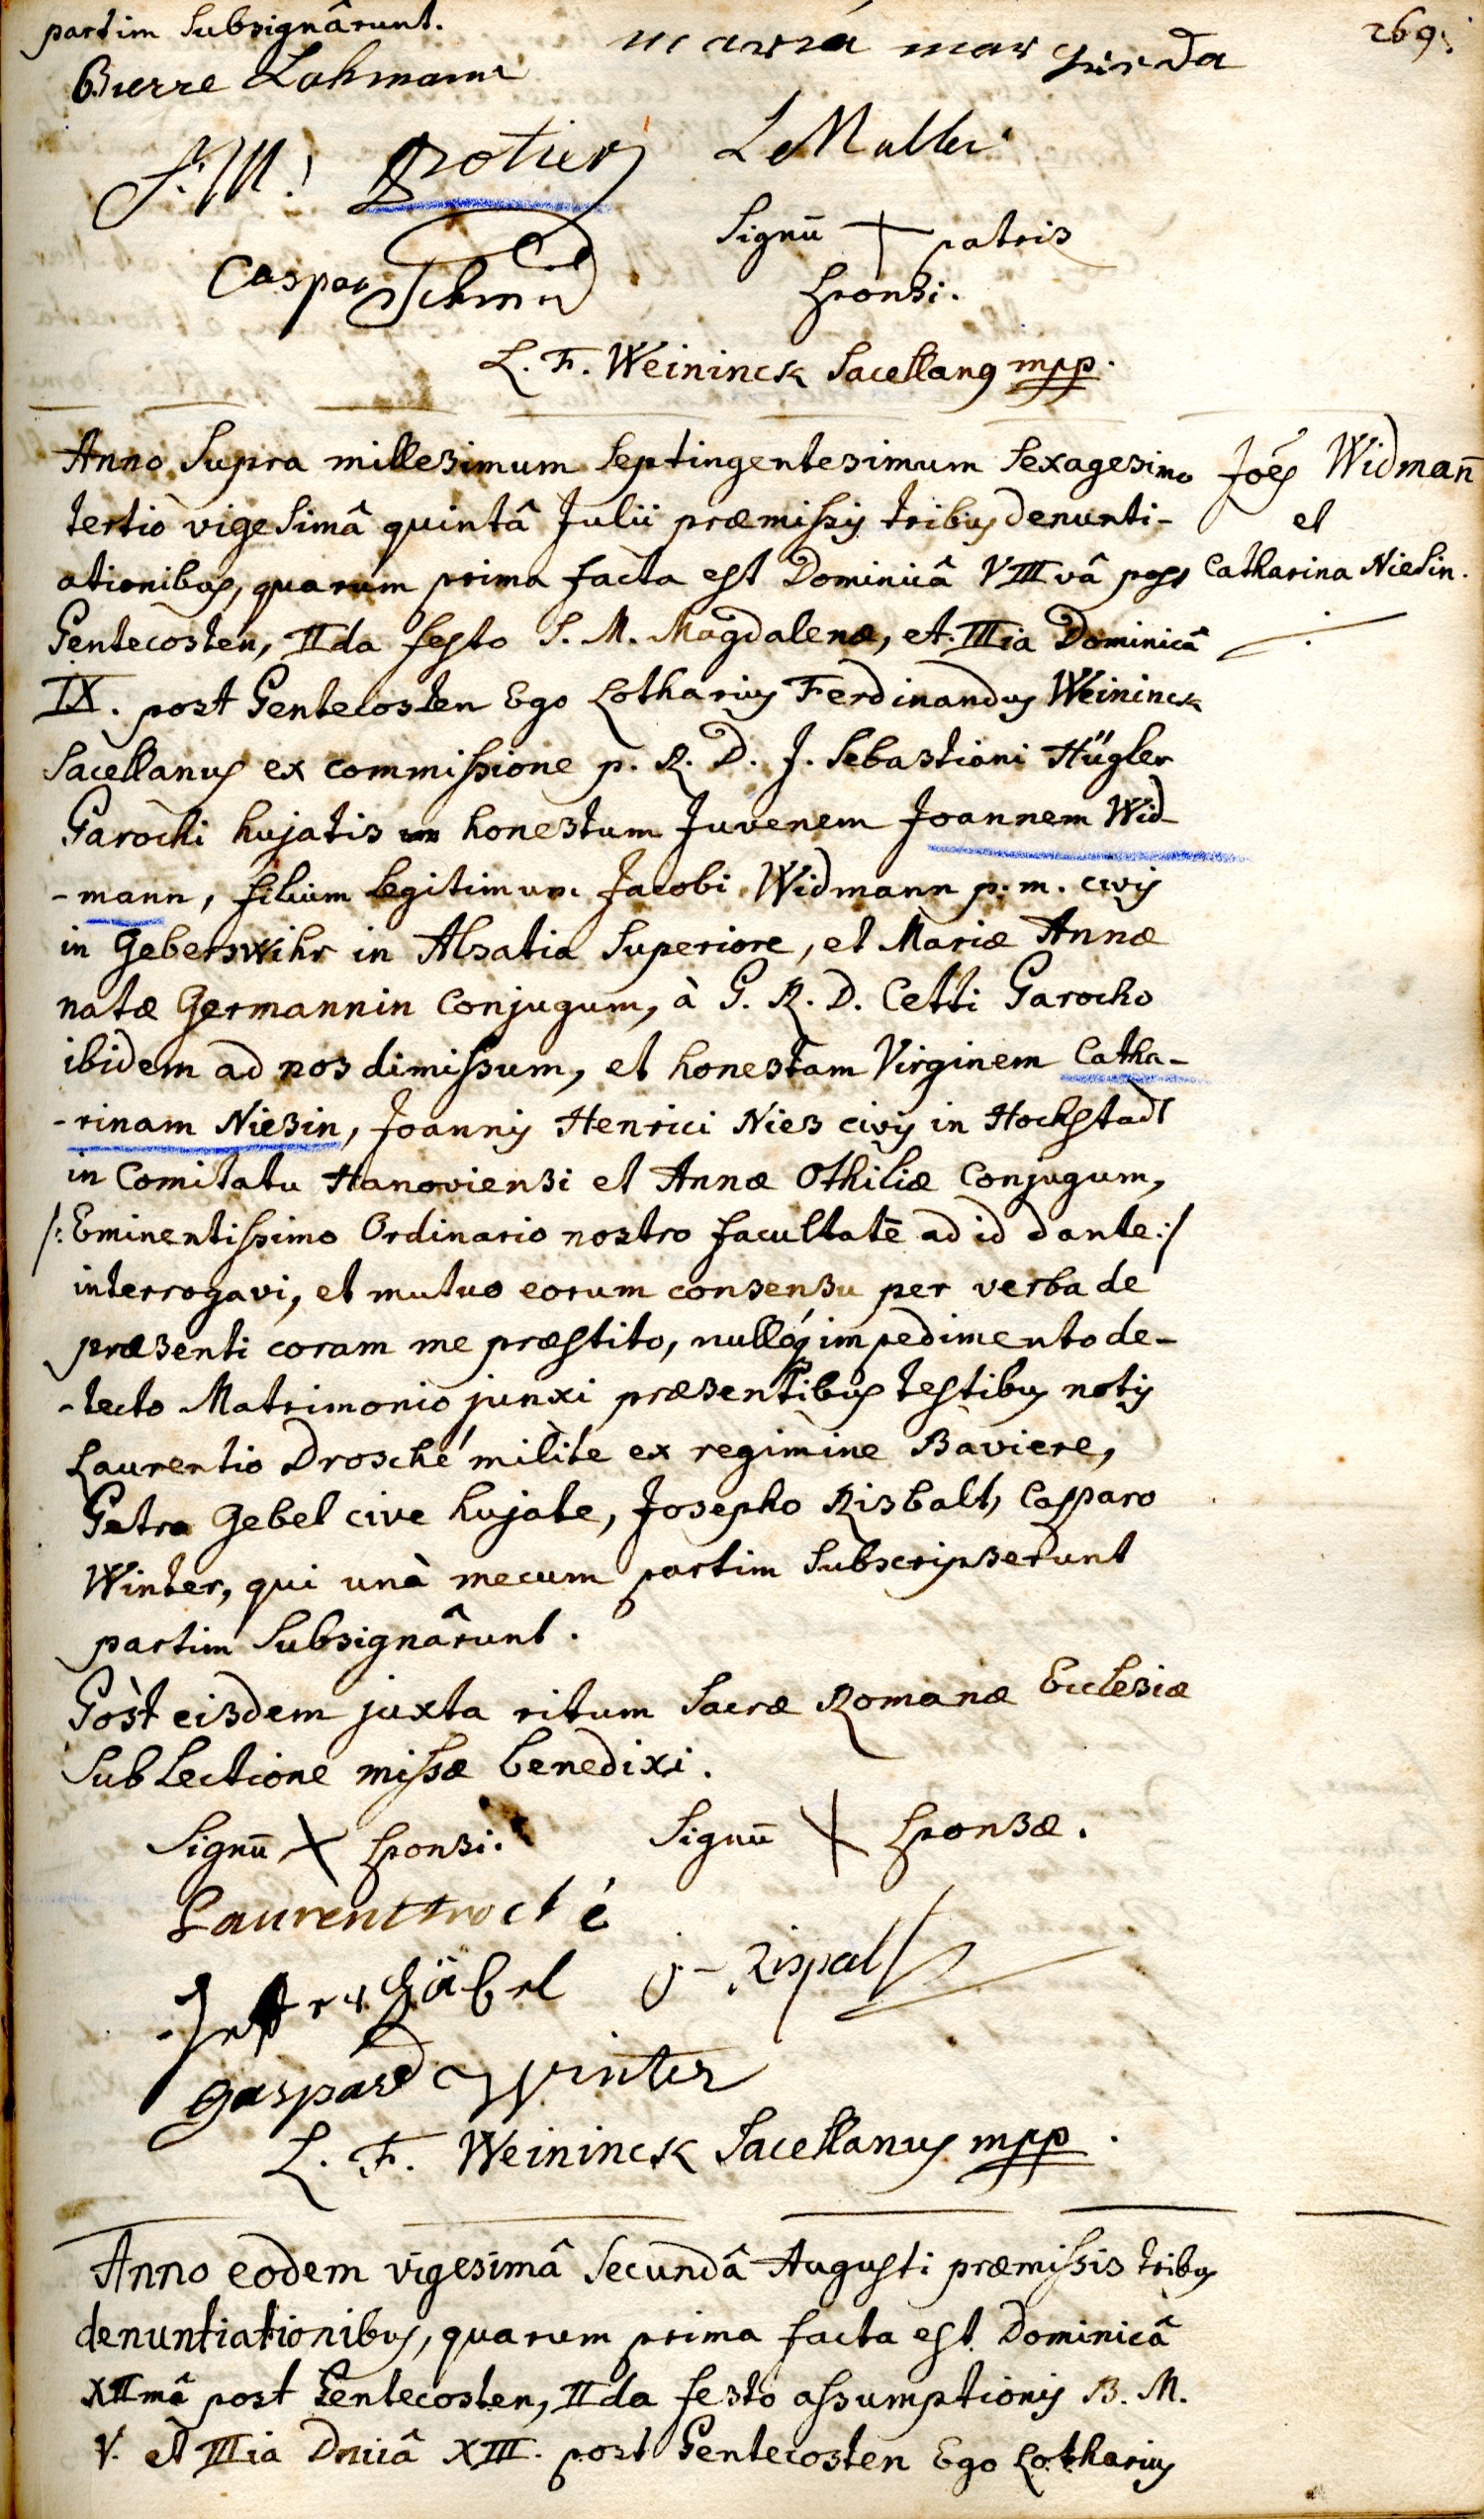 partim Subsignârunt.
269.
maria mar
Pierre Lahmann
F. M. Grotier
Le Muller
Signū + patris
Sponsi.
Caspar Schmid
L. F. Weininck Sacellanꝯ mpp.
Anno Supra millesimum Septingentesimum Sexagesimo
tertiò vigeSimâ quintâ Julii præmißis tribus denunti-
ationibus, quarum prima facta est Dominicâ VIIIvâ post
Pentecosten, IIda festo S. M. Magdalenæ, et IIIia Dominicâ
IX. post Pentecosten Ego Lotharius Ferdinandus Weininck
Sacellanus ex commißione p. R. D. J. Sebastiani Hügler
Parochi hujatis honestum Juvenem Joannem Wid
-mann, filium legitimum Jacobi Widmann p. m. civis
in Geberswihr in Alsatia Superiore, et Mariæ Annæ
natæ Germannin Conjugum, à P. R. D. Cetti Parocho
ibidem ad nos dimißum, et honestam Virginem Catha-
-rinam Niesin, Joannis Henrici Nies civis in Hochstadt
in Comitatu Hanoviensi et Annæ Othiliæ Conjugum,
/: Eminentißimo Ordinario nostro facultatē ad id dante :/
interrogavi, et mutuo eorum consensu per verba de
præsenti coram me præstito, nulloq́ impedimento de-
-tecto Matrimonio junxi præsentibus testibus notis
Laurentio Drosché milite ex regimine Baviere,
Petro Gebel cive hujate, Josepho Risbalt, Casparo
Winter, qui unà mecum partim Subscripserunt
partim Subsignârunt.
Pòst eisdem juxta ritum Sacræ Romanæ Ecclesiæ
Sub Lectione mißæ benedixi.
Joēs Widmañ
et
Catharina Niesin.
Signū X Sponsi. Signū X Sponsæ.
Laurent troché
Petter Gäbel j- Rispalt
gaspard Winter
L. F. Weininck Sacellanus mpp.
Anno eodem vigesimâ Secundâ Augusti præmißis tribus
denuntiationibus, quarum prima facta est Dominicâ
XIImâ post Pentecosten, IIda festo aßumptionis B. M.
V. et IIIia Dnicâ XIII. post Pentecosten Ego Lotharius